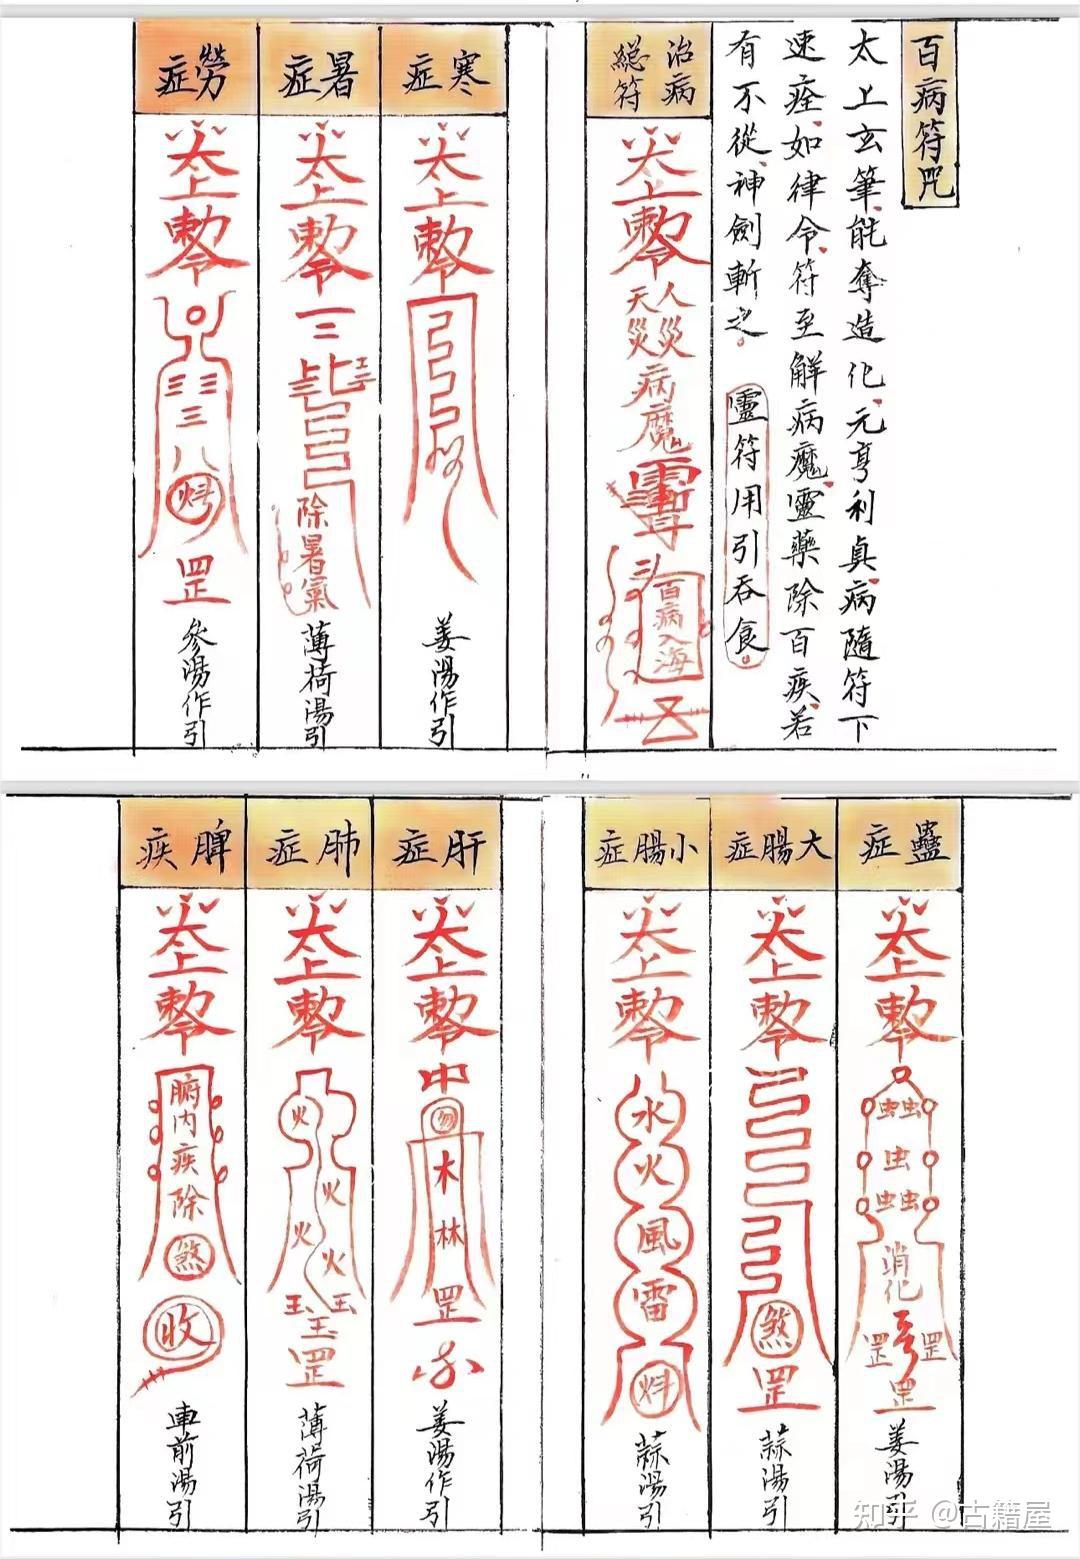 百病符咒
太上玄筆能奪造化元亨利貞病隨符下
速痊如律令符至解病魔靈藥除百疾若
有不從神劍斬之 靈符用引吞食
治病
總符
太上
敕令
天災 人災
病魔
百病入海
寒症
太上
敕令
姜湯作引
暑症
太上
敕令
除暑氣
薄荷湯引
勞症
太上
敕令
罡
參湯作引
蠱症
太上
敕令
虫虫
虫
虫虫
消化
罡 罡
罡
姜湯引
大腸症
太上
敕令
煞
罡
蒜湯引
小腸症
太上
敕令
水
火
風
雷
蒜湯引
肝症
太上
敕令
木
林
罡
姜湯作引
肺症
太上
敕令
火
火
火
火
玉 玉
玉
罡
薄荷湯引
脾疾
太上
敕令
腑内疾除
煞
收
車前湯引
知乎 @古籍屋